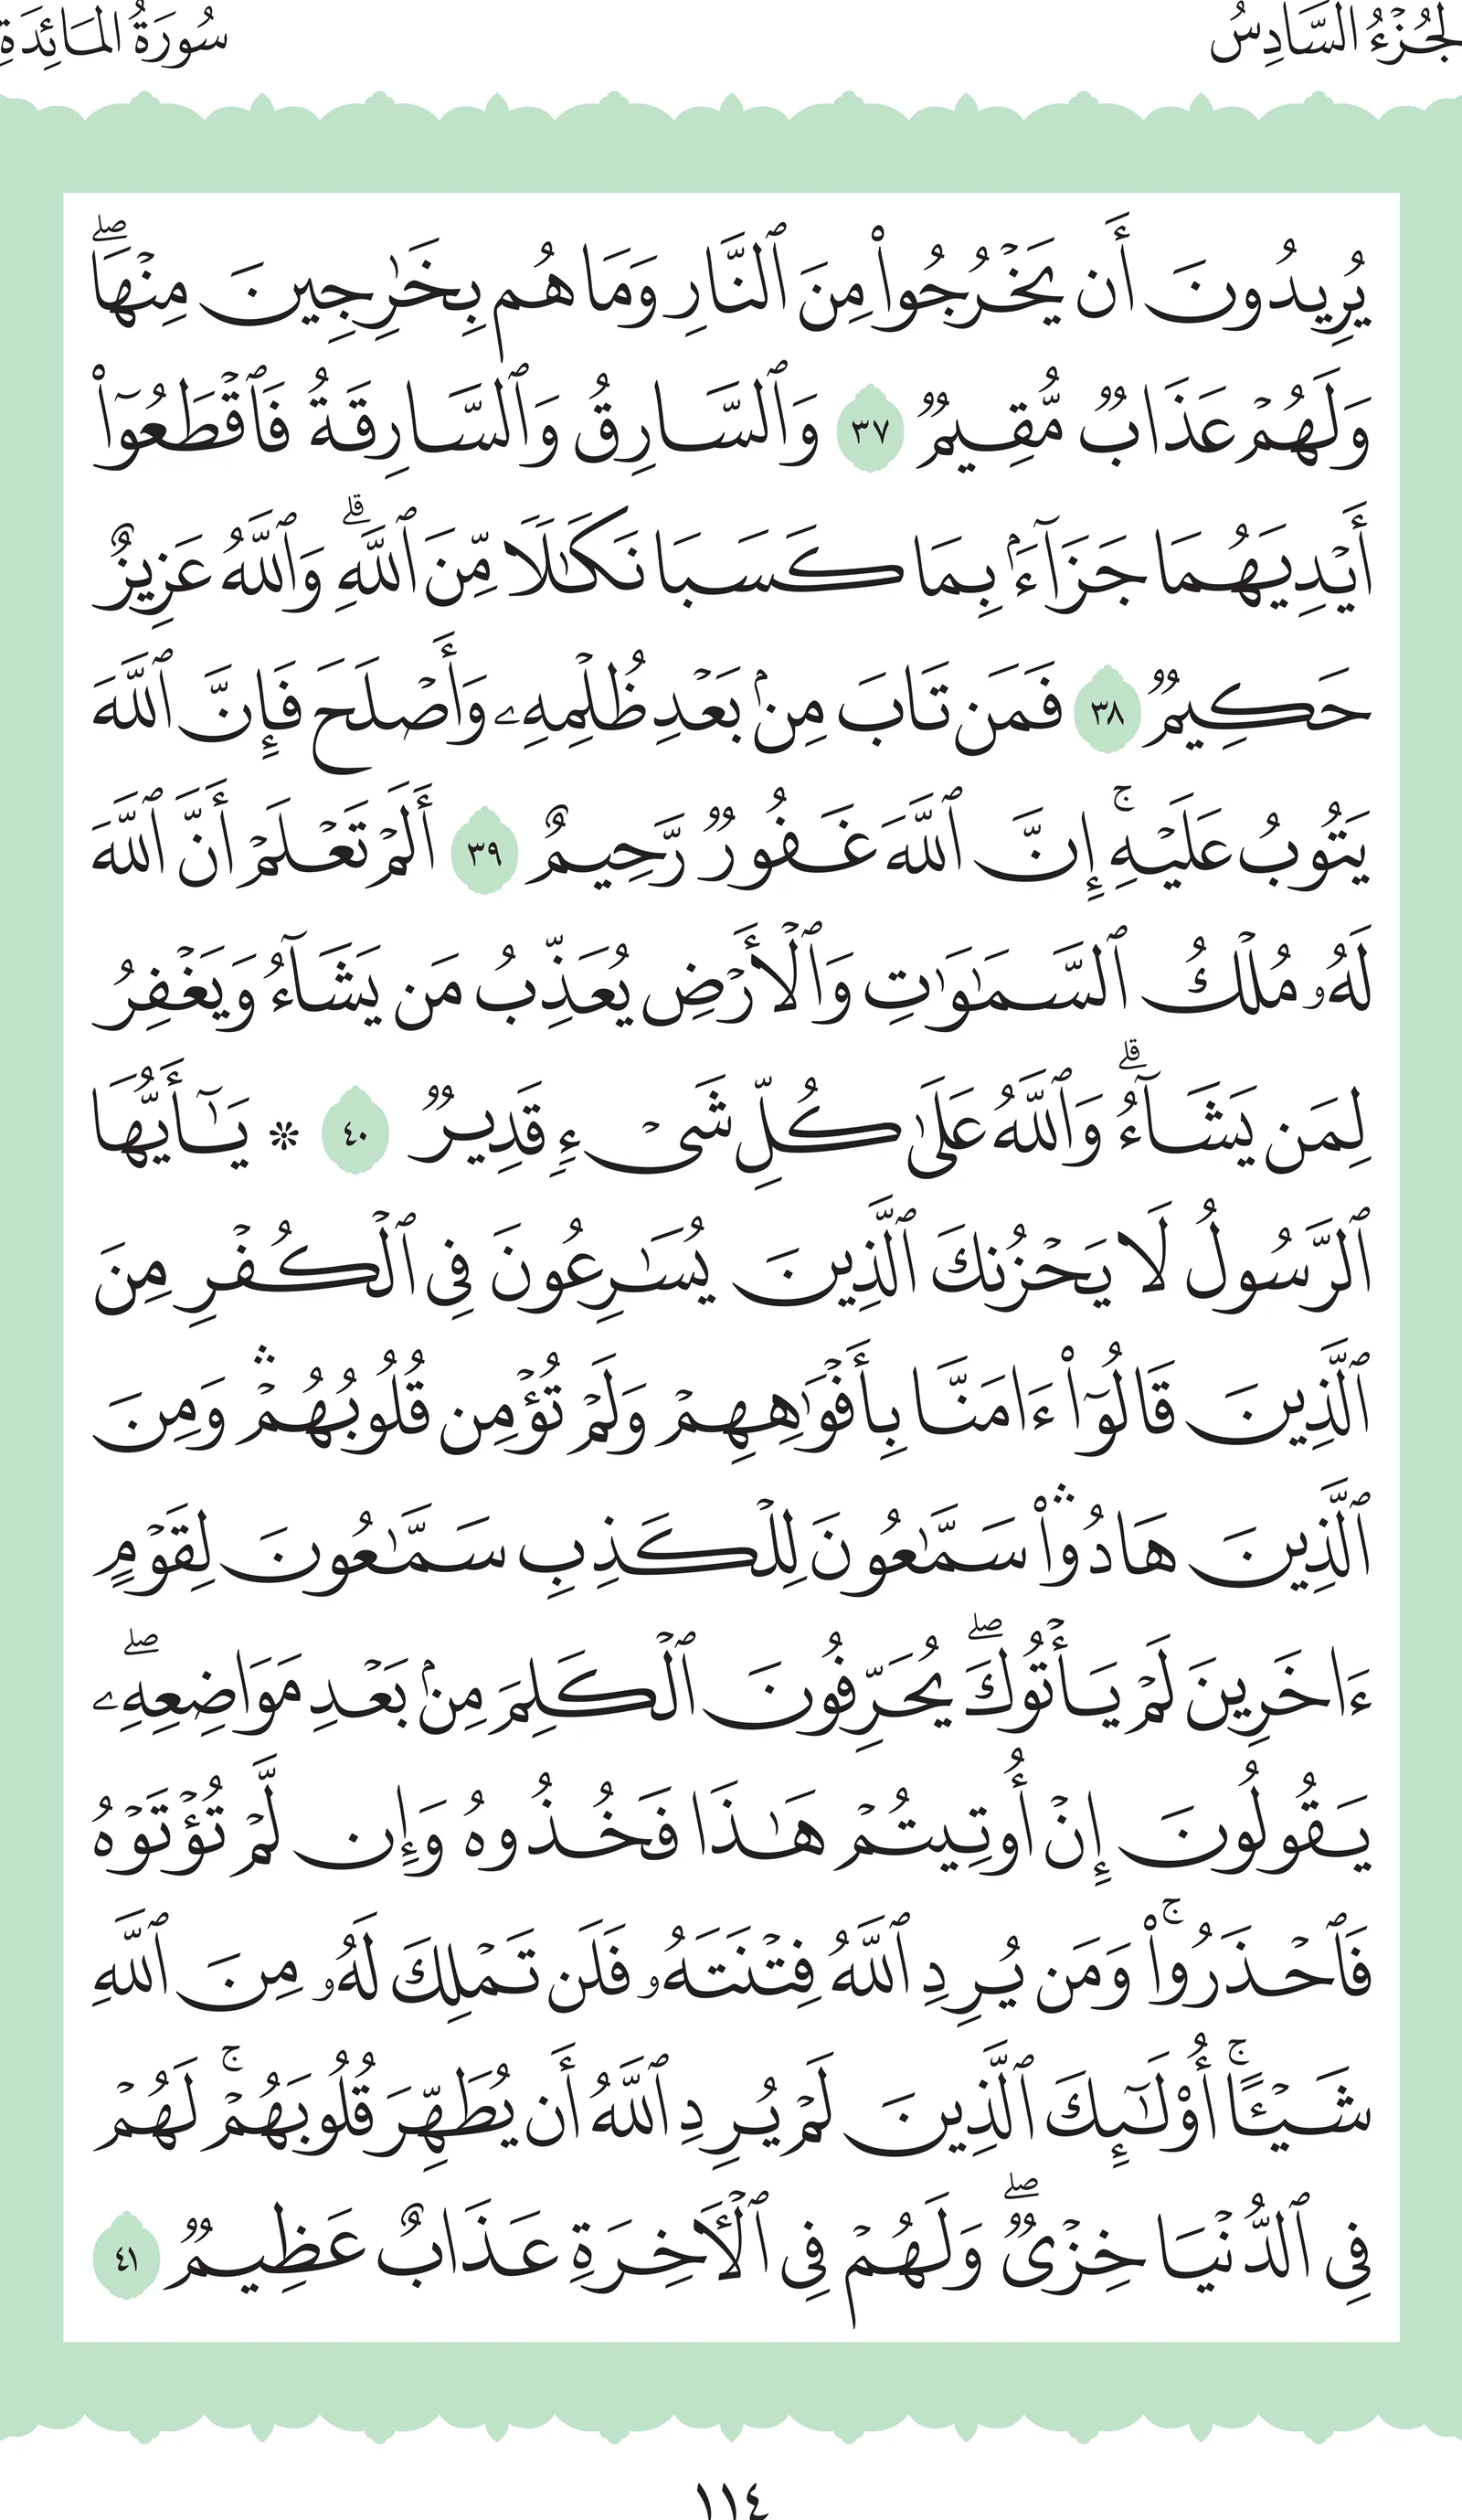 سُورَةُ المَائِدَةِ
الجُزْءُ السَّادِسُ
يُرِيدُونَ أَن يَخْرُجُوا۟ مِنَ ٱلنَّارِ وَمَا هُم بِخَـٰرِجِينَ مِنْهَا ۖ
وَلَهُمْ عَذَابٌ مُّقِيمٌ ٣٧ وَٱلسَّارِقُ وَٱلسَّارِقَةُ فَٱقْطَعُوٓا۟
أَيْدِيَهُمَا جَزَآءًۢ بِمَا كَسَبَا نَكَـٰلًا مِّنَ ٱللَّهِ ۗ وَٱللَّهُ عَزِيزٌ
حَكِيمٌ ٣٨ فَمَن تَابَ مِنۢ بَعْدِ ظُلْمِهِۦ وَأَصْلَحَ فَإِنَّ ٱللَّهَ
يَتُوبُ عَلَيْهِ ۚ إِنَّ ٱللَّهَ غَفُورٌ رَّحِيمٌ ٣٩ أَلَمْ تَعْلَمْ أَنَّ ٱللَّهَ
لَهُۥ مُلْكُ ٱلسَّمَـٰوَٰتِ وَٱلْأَرْضِ يُعَذِّبُ مَن يَشَآءُ وَيَغْفِرُ
لِمَن يَشَآءُ ۗ وَٱللَّهُ عَلَىٰ كُلِّ شَىْءٍ قَدِيرٌ ٤٠ ۞ يَـٰٓأَيُّهَا
ٱلرَّسُولُ لَا يَحْزُنكَ ٱلَّذِينَ يُسَـٰرِعُونَ فِى ٱلْكُفْرِ مِنَ
ٱلَّذِينَ قَالُوٓا۟ ءَامَنَّا بِأَفْوَٰهِهِمْ وَلَمْ تُؤْمِن قُلُوبُهُمْ ۛ وَمِنَ
ٱلَّذِينَ هَادُوا۟ ۛ سَمَّـٰعُونَ لِلْكَذِبِ سَمَّـٰعُونَ لِقَوْمٍ
ءَاخَرِينَ لَمْ يَأْتُوكَ ۖ يُحَرِّفُونَ ٱلْكَلِمَ مِنۢ بَعْدِ مَوَاضِعِهِۦ ۖ
يَقُولُونَ إِنْ أُوتِيتُمْ هَـٰذَا فَخُذُوهُ وَإِن لَّمْ تُؤْتَوْهُ
فَٱحْذَرُوا۟ ۚ وَمَن يُرِدِ ٱللَّهُ فِتْنَتَهُۥ فَلَن تَمْلِكَ لَهُۥ مِنَ ٱللَّهِ
شَيْـًٔا ۚ أُو۟لَـٰٓئِكَ ٱلَّذِينَ لَمْ يُرِدِ ٱللَّهُ أَن يُطَهِّرَ قُلُوبَهُمْ ۚ لَهُمْ
فِى ٱلدُّنْيَا خِزْىٌ ۖ وَلَهُمْ فِى ٱلْـَٔاخِرَةِ عَذَابٌ عَظِيمٌ ٤١
١١٤